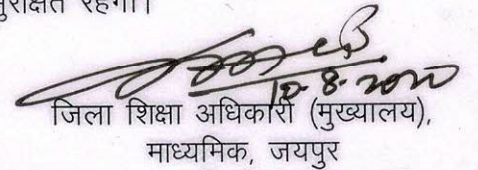 सुरक्षित रहेगा।
12-8-2020
जिला शिक्षा अधिकारी (मुख्यालय),
माध्यमिक, जयपुर